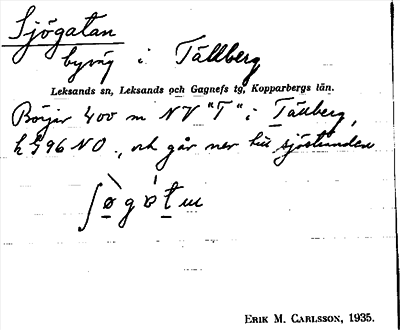 Sjögatan
byväg i Tällberg
Leksands sn, Leksands och Gagnefs tg, Kopparbergs län.
Börjar 400 m NV "T" i Tällberg,
k 596 NO., och går ner till sjöstranden
ʃøgɒtu
ERIK M. CARLSSON, 1935.